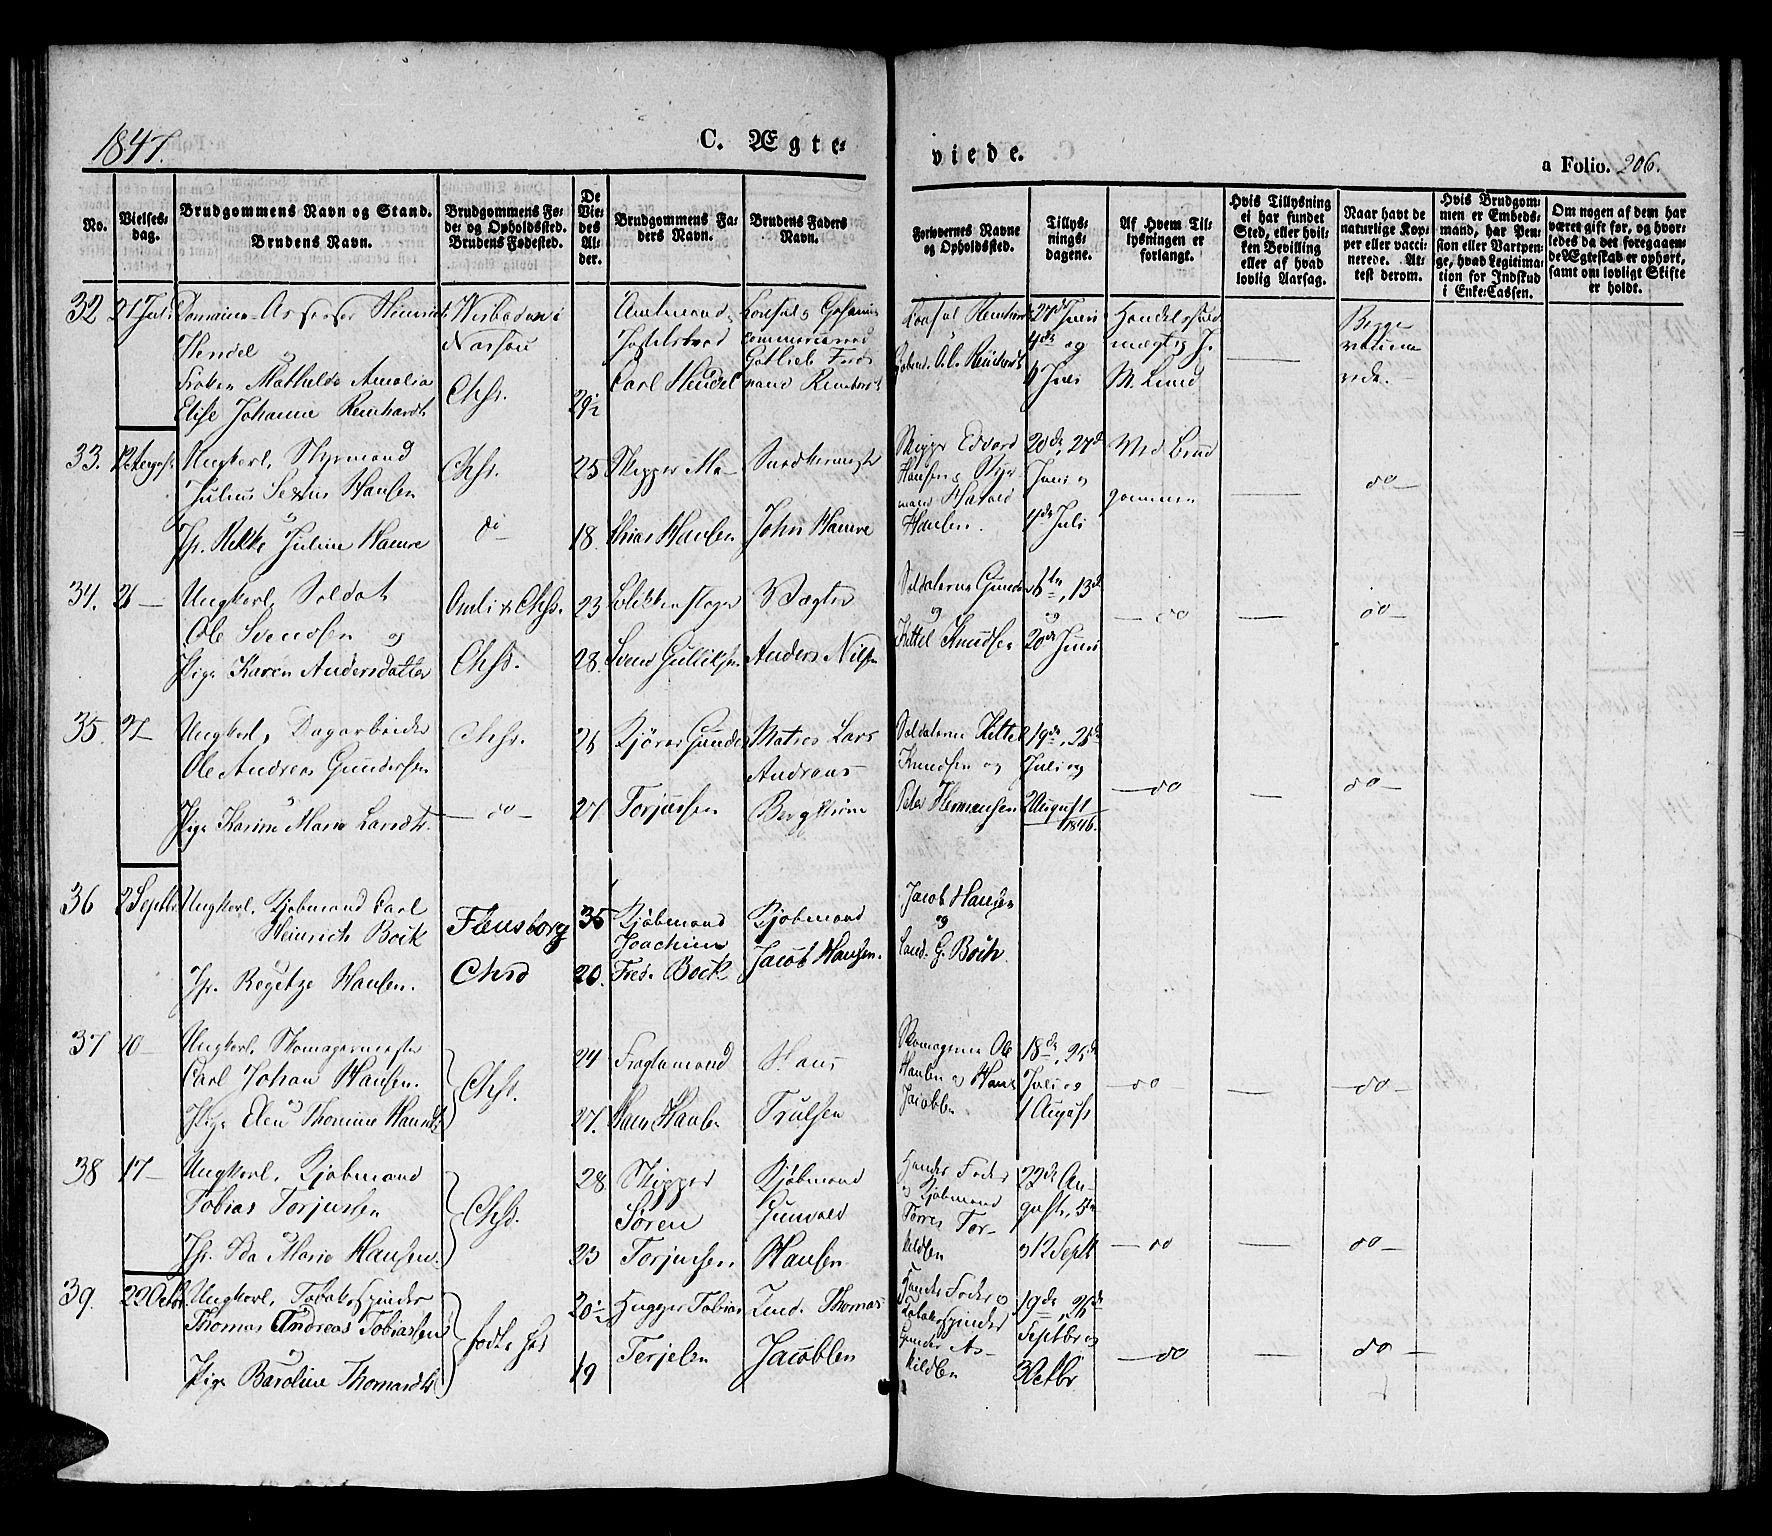 1847.
C. Ægte=
viede.
a Folio. 206.
No.
Vielses-
dag.
Brudgommens Navn og Stand.
Brudens Navn.
Brudgommens Fø-
de= og Opholdssted.
Brudens Fødested.
De
Vie-
des
Al-
der.
Brudgommens Fa-
ders Navn.
Brudens Faders
Navn.
Forlovernes Navne
og Opholdssted.
Tillys-
nings-
dagene.
Af Hvem Til-
lysningen er
forlangt.
Hvis Tillysning
ei har fundet
Sted, eller hvil-
ken Bevilling
eller af hvad
lovlig Aarsag.
Naar havt de
naturlige Kop-
per eller vacci-
nerede. At-
test derom.
Hvis Brudgom-
men er Embeds-
mand, har Pen-
sion eller Vartpen-
ge, hvad Legitima-
tion for Indskud
i Enke=Cassen.
Om nogen af dem har
været gift før, og hvor-
ledes da det foregaaen-
de Ægteskab er ophørt,
samt om lovligt Skifte
er holdt.
32
21 Juli
Domaine-Assessor Heinrich
Hendel og
Frøken Mathilde Amalia
Elise Johanne Reinhardt
Wisbaden i
Nassau
Chst.
29½
Amtmand
Carl Hendel
Consul
Gottlieb Ferdi
nand Reinhardt
Consul Reinhardt
27de Juni
4de og
Juli
Handelsfuld
mægtig J.
M. Lund
Begge
vaccine
rede.
33.
12 August
Ungkarl, Styrmand
Julius Severin Hansen
og
Jfr. Rikke Juline Hamre
Chst.
do
25
18.
Skipper Ma-
thias Hansen
Snedkermester
John Hamre
Skipper Edvard
Hansen & Styr
mand Harald
Hansen.
20de, 27de
Juni og
4de Juli
Ved Brud
gommen
do
34.
26 —
Ungkarl, Soldat
Ole Svendsen og
Pige Karen Andersdatter
Omli & Chst.
Chst.
23
28.
Svend Gulliksen
Vægter
Anders Nilsen
Soldaterne
og
Kittel Knudsen
6te, 13de
og
20de Juni
do
do
35.
27
Ungkarl, Dagarbeider
Ole Andreas Gundersen
og
Pige Karine Marie Larsdtr.
Chst.
do
26
27
Gunder
Torjussen
Matros Lars
Andreas
Bergstrøm
Soldaterne Kittel
Knudsen og
Peter Hermansen
19de, 26de
Juli og
2 August
1846.
do
do
36
2 Septbr
Ungkarl, Kjøbmand Carl
Heinrich Bock
Jfr. Regitze Hansen.
Flensborg
Chsd
35
20.
Kjøbmand
Joachim
Fred. Bock
Kjøbmand
Jacob Hansen.
Jacob Hansen
og
Cand. G. Boch
37
10 —
Ungkarl, Skomagermester
Carl Johan Hansen.
og
Pige Elen Thomine Hansdtr
Chst.
24
27.
Fragtemand
Hans Hansen
Hans
Trulsen
Skomagerne Ole
Hansen og Hans
Jacobsen
18de, 25de
Juli og
1 August
do
do
38
17 —
Ungkarl, Kjøbmand
Tobias Torjussen
og
Jfr. Ida Marie Hansen.
Chst.
28
23
Skipper
Søren
Torjussen
Kjøbmand
Gunvald
Hansen
Hendes Fader
og Kjøbmand
Torres Tor-
kildsen
22de Au-
gust, 5te
& 12 Septb
do
do
39.
22 Octbr.
Ungkarl, Tobakspinder
Thomas Andreas Tobiassen
og
Pige Baroline Thomasdtr.
fødte her
20½
19
Tobias
Terjesen
Thomas
Jacobsen
Hendes Fader og
Tobakspinder
Gunder As-
kildsen
19de, 26de
Septbr og
3 Octbr
do
do